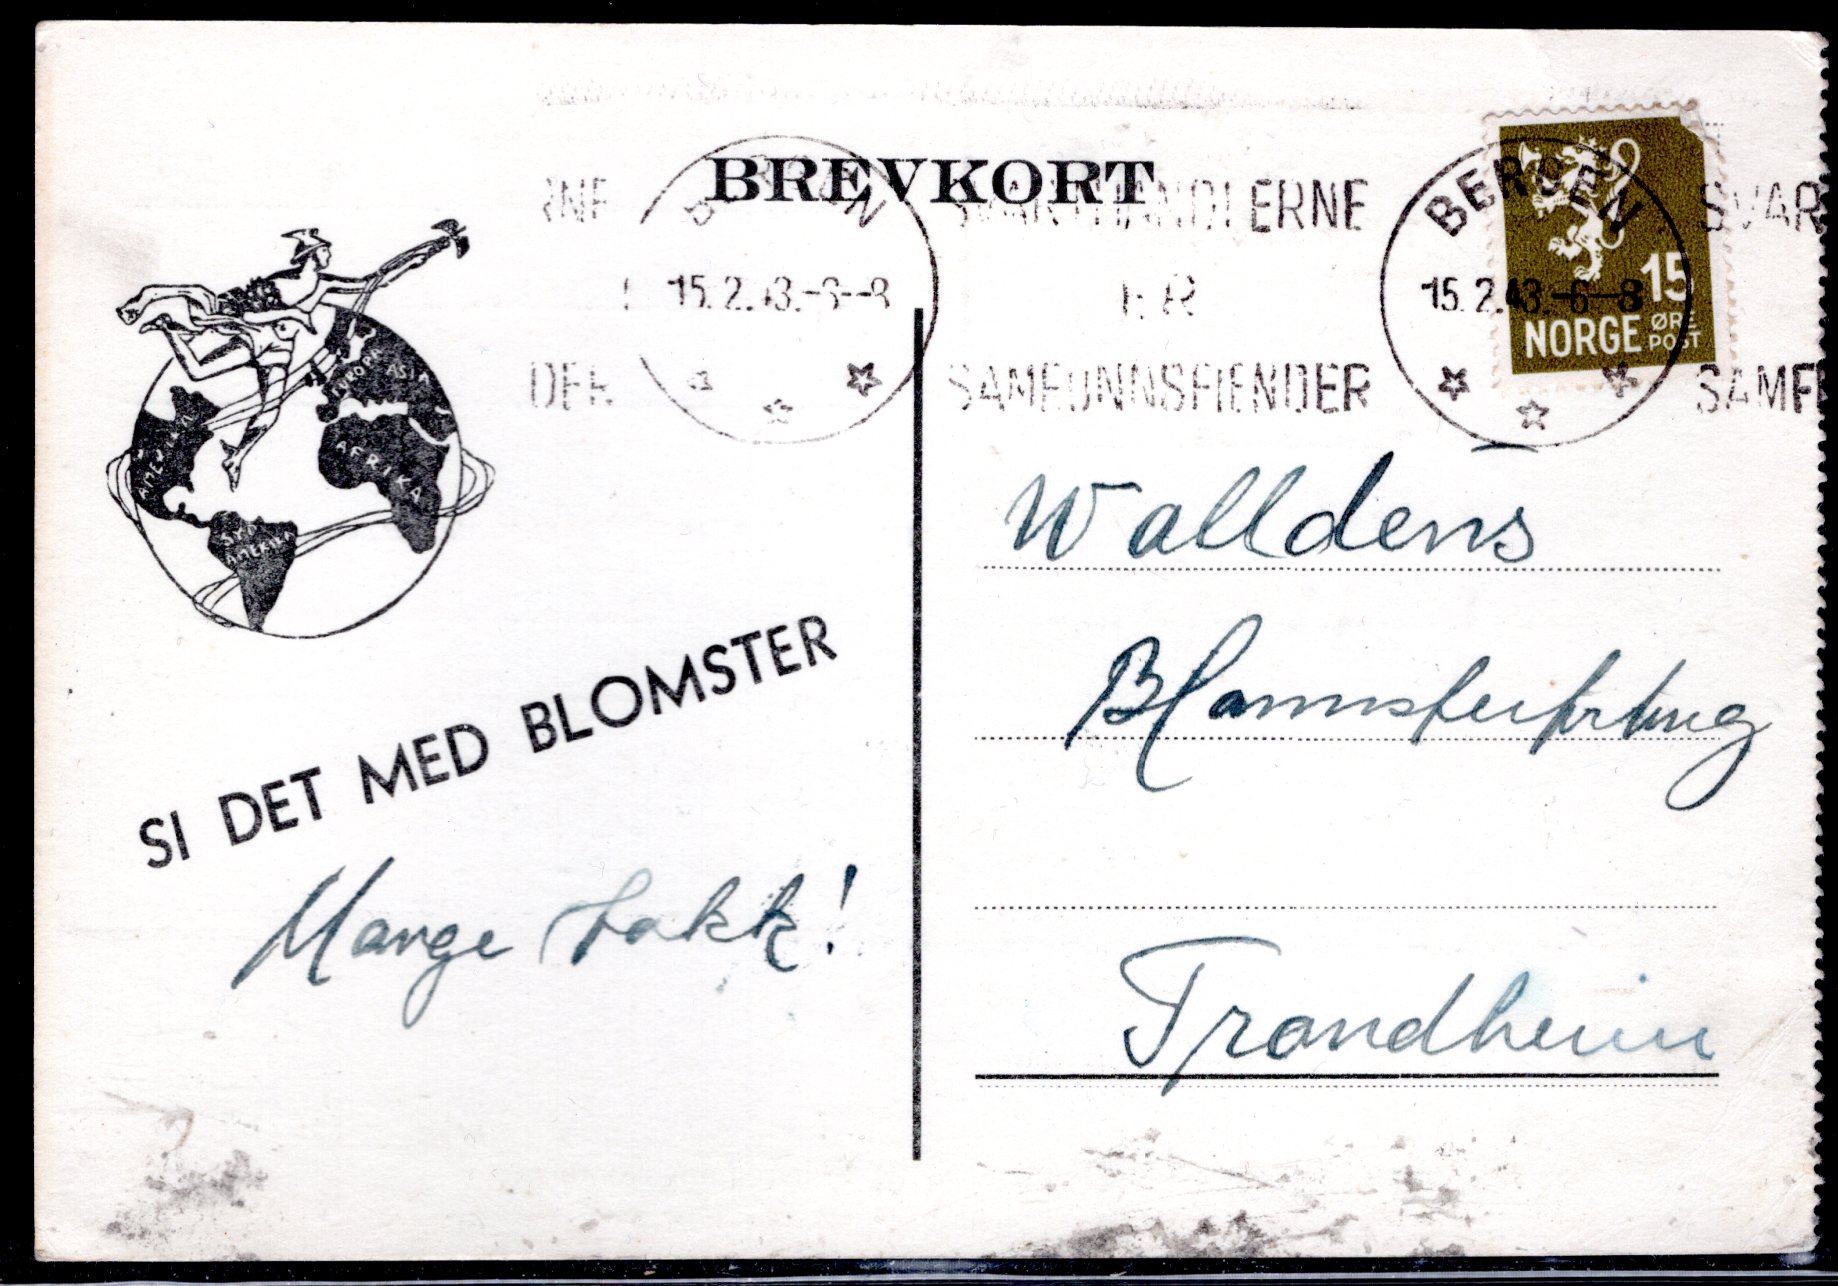 BREVKORT
RNE
BERGEN
SVARTHANDLERNE
BERGEN
SVAR
15.2.43.-6--8
ER
15.2.43.-6--8
15
ØRE
NORGE POST
DER
SAMFUNNSFIENDER
SAMF
EUROPA
ASIA
AFRIKA
AMERIKA
SYD
AMERIKA
Walldens
Blomsterforretning
SI DET MED BLOMSTER
Mange takk!
Trondheim